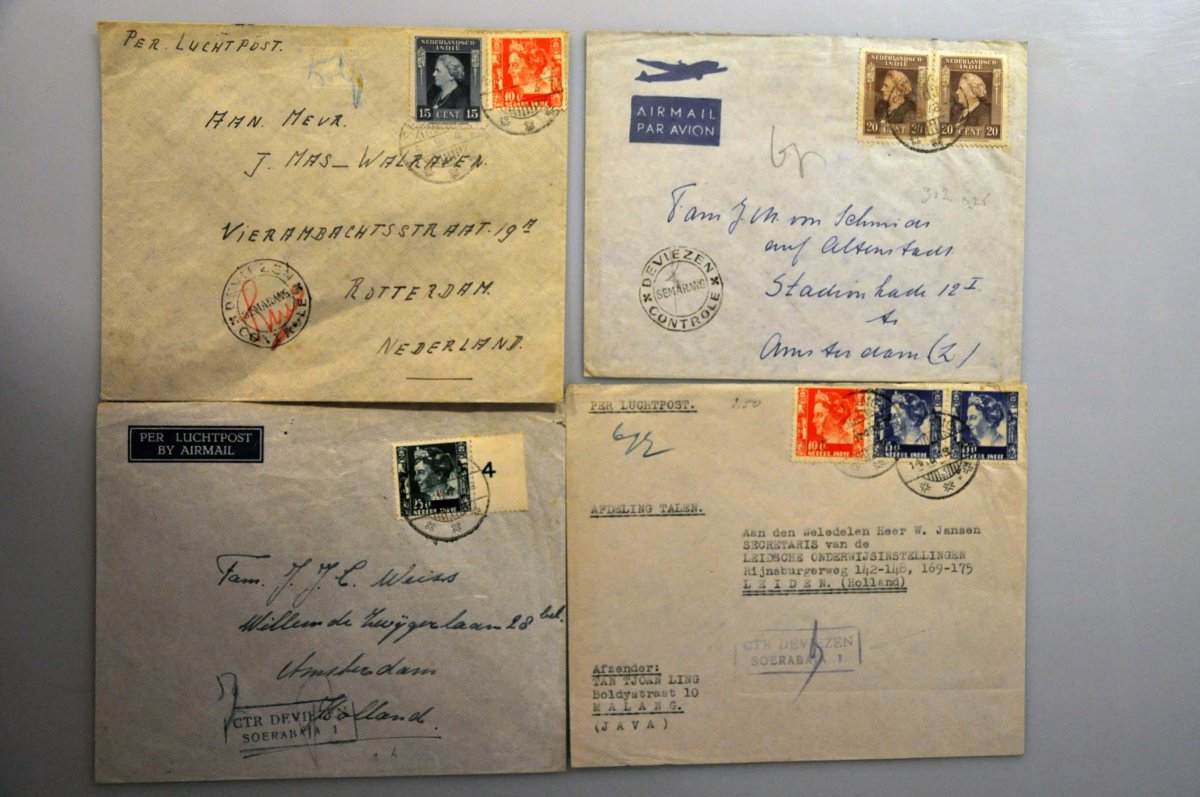 PER LUCHTPOST.
NEDERLANDSCH-
INDIË
15 CENT 15
10 c
NEDERL. INDIE
AAN. MEVR.
J. MAS_WALRAVEN.
VIERAMBACHTSSTRAAT. 19A
ROTTERDAM.
NEDERLAND.
DEVIEZEN
SEMARANG
CONTROLE
AIRMAIL
PAR AVION
NEDERLANDSCH-
INDIË
20 CENT 20
NEDERLANDSCH-
INDIË
20 CENT 20
312
Fam J.M. von Schmidt
auf Altenstadt
Stadionkade 12 I
Amsterdam (Z)
DEVIEZEN
SEMARANG
CONTROLE
PER LUCHTPOST
BY AIRMAIL
25 c
4
Fam. J. J. C. Weiss
Willem de Zwijgerlaan 28 bel.
Amsterdam
Holland.
CTR DEVIEZEN
SOERABAJA 1
PER LUCHTPOST.
2.50
10 c
NEDERL. INDIE
NEDERL. INDIE
NEDERL. INDIE
AFDELING TALEN.
Aan den weledelen Heer W. Jansen
SECRETARIS van de
LEIDSCHE ONDERWIJSINSTELLINGEN
Rijnsburgerweg 142-148, 169-175
LEIDEN. (Holland)
CTR DEVIEZEN
SOERABAJA 1
Afzender:
TAN TJOAN LING
Boldystraat 10
MALANG.
(JAVA)